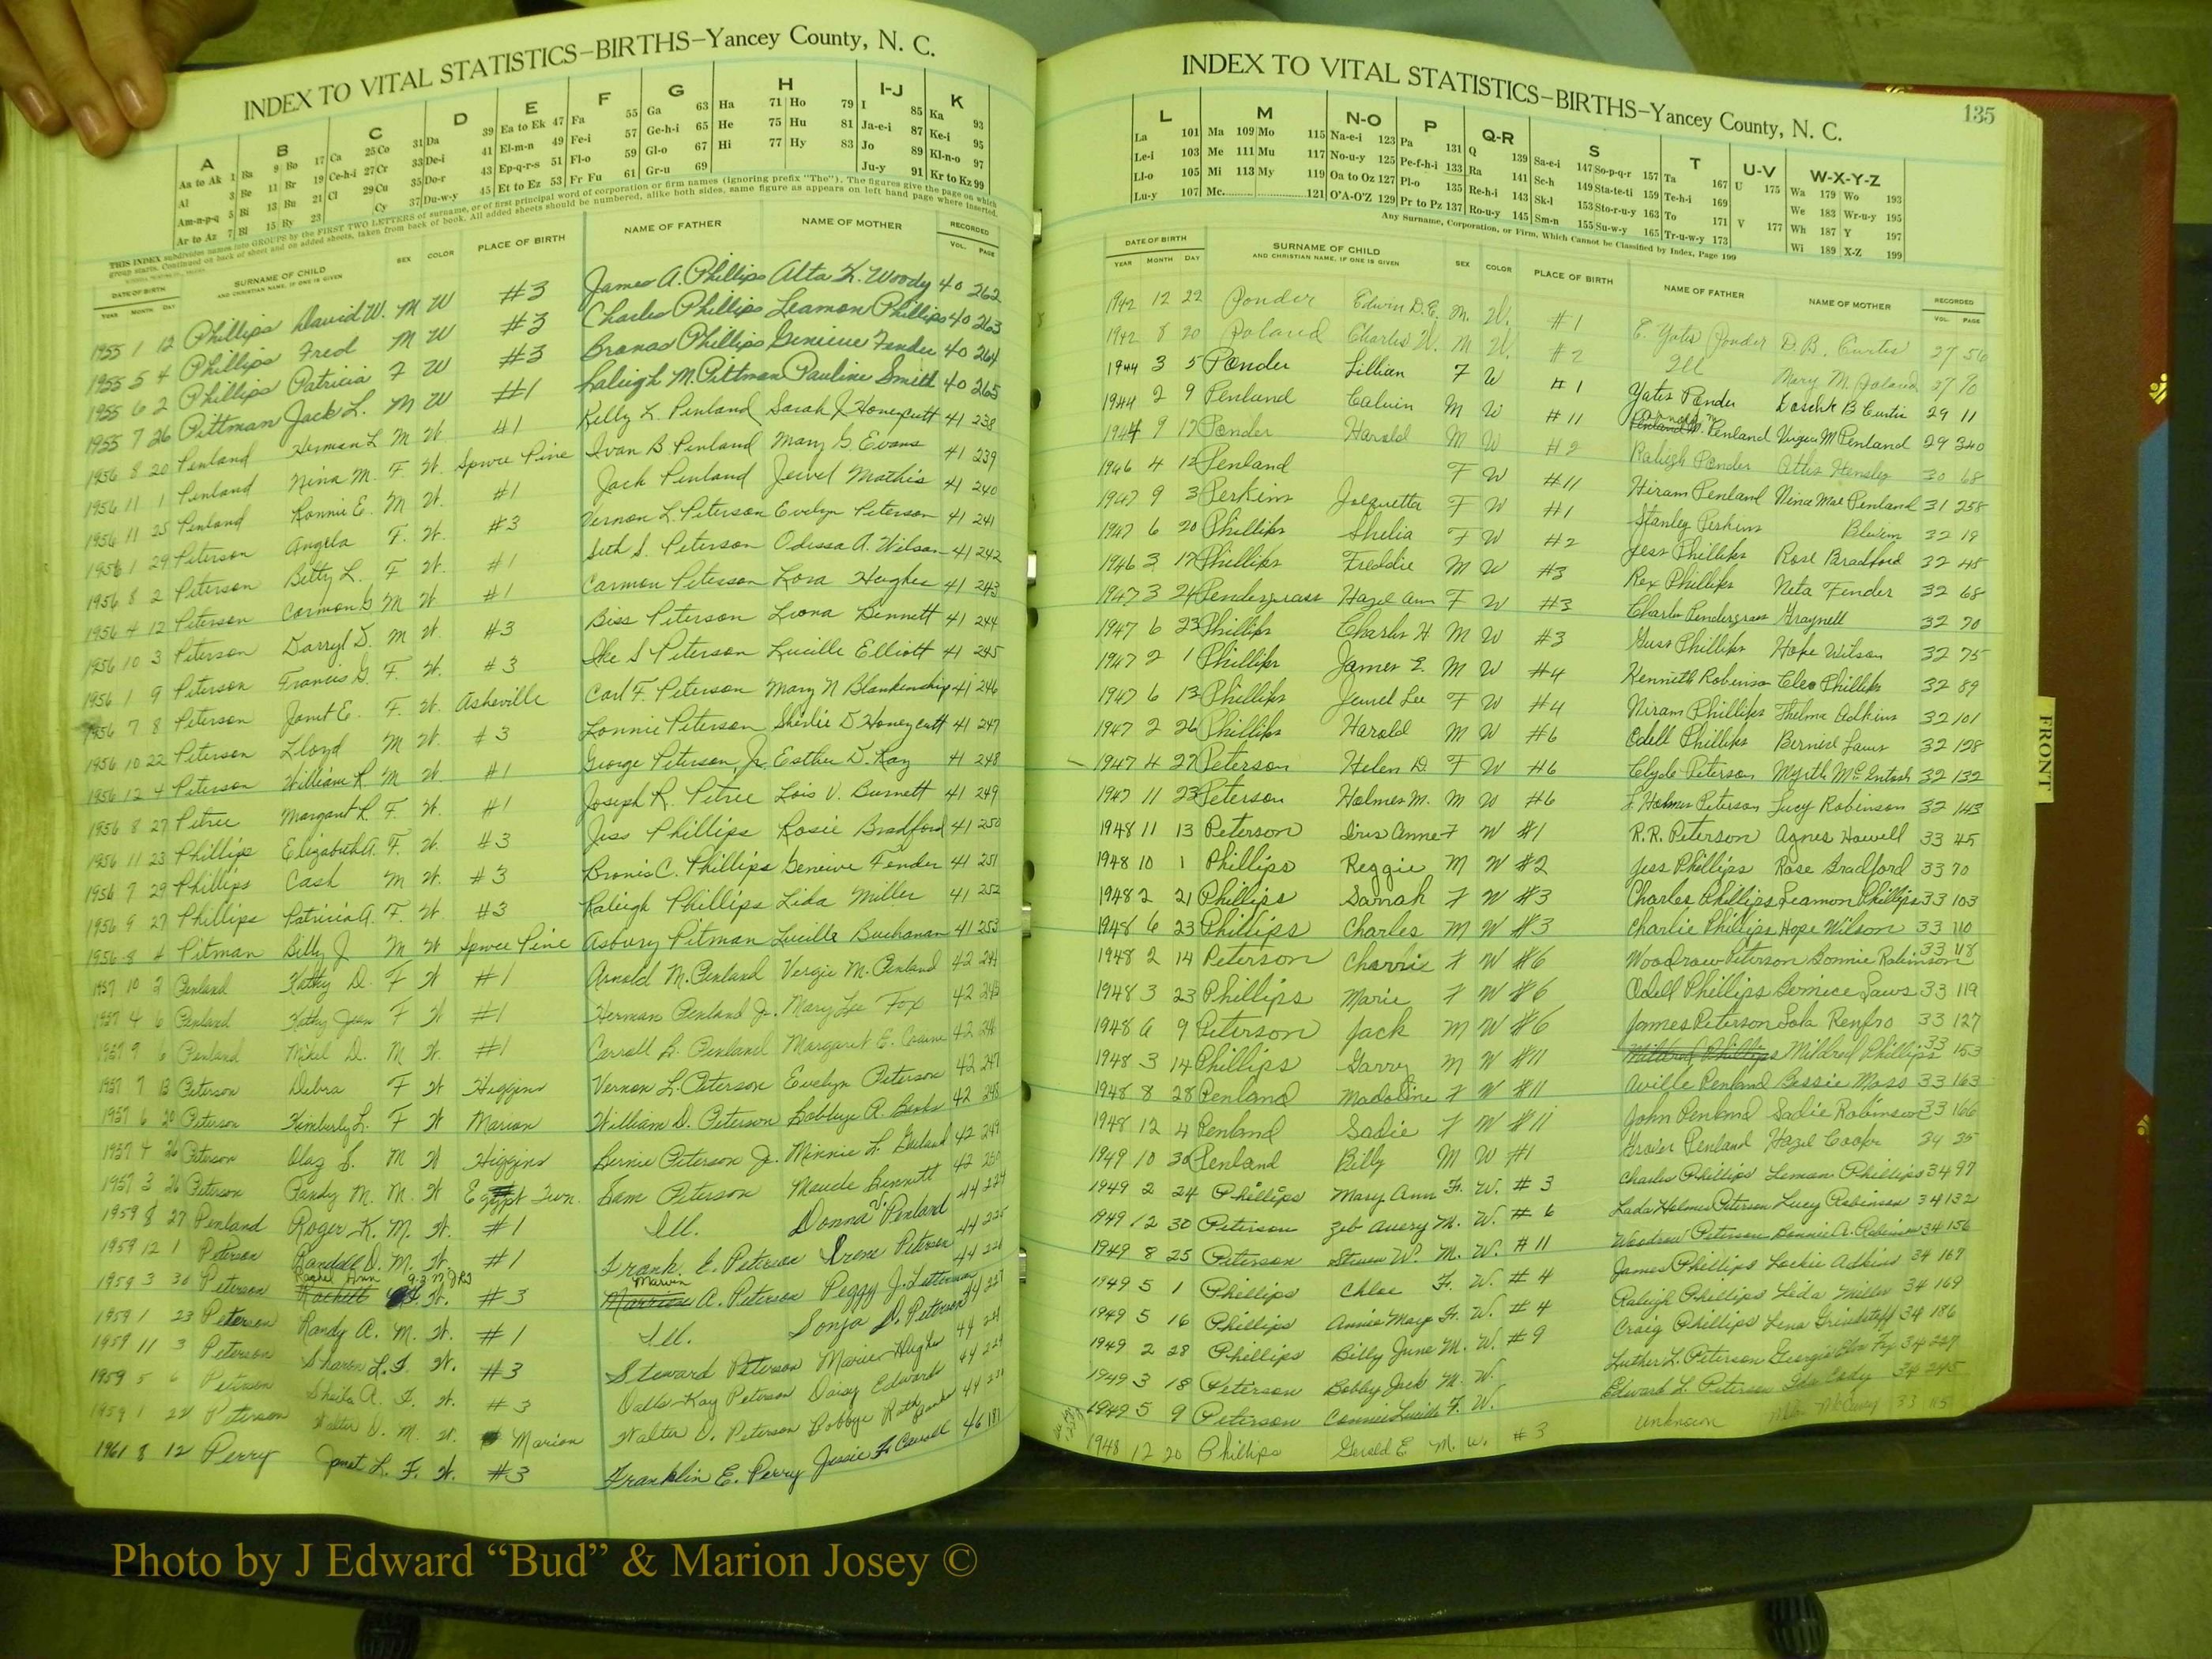 INDEX TO VITAL STATISTICS–BIRTHS–Yancey County, N. C.
A B C D E F G H I-J K
Aa to Ak 1 Ba 9 Bo 17 Ca 25 Co 31 Da 39 Ea to Ek 47 Fa 55 Ga 63 Ha 71 Ho 79 I 85 Ka 93
Al 3 Be 11 Br 19 Ce-h-i 27 Cr 33 De-i 41 El-m-n 49 Fe-i 57 Ge-h-i 65 He 75 Hu 81 Ja-e-i 87 Ke-i 95
Am-n-p-q 5 Bi 13 Bu 21 Cl 29 Cu 35 Do-r 43 Ep-q-r-s 51 Fl-o 59 Gl-o 67 Hi 77 Hy 83 Jo 89 Kl-n-o 97
Ar to Az 7 Bl 15 By 23 Cy 37 Du-w-y 45 Et to Ez 53 Fr Fu 61 Gr-u 69 Ju-y 91 Kr to Kz 99
THIS INDEX subdivides names into GROUPS by the FIRST TWO LETTERS of surname, or of first principal word of corporation or firm names (ignoring prefix "The"). The figures give the page on which
group starts. Continued on back of sheet and on added sheets, taken from back of book. All added sheets should be numbered, alike both sides, same figure as appears on left hand page where inserted.
DATE OF BIRTH SURNAME OF CHILD SEX COLOR PLACE OF BIRTH NAME OF FATHER NAME OF MOTHER RECORDED
YEAR MONTH DAY AND CHRISTIAN NAME, IF ONE IS GIVEN VOL. PAGE
1955 1 12 Phillips David W. M W #3 James A. Phillips Alta K. Woody 40 262
1955 5 4 Phillips Fred M W #3 Charles Phillips Leamon Phillips 40 263
1955 6 2 Phillips Patricia F W #3 Bronas Phillips Genieve Fender 40 264
1955 7 26 Pittman Jack L. M W #1 Raleigh M. Pittman Pauline Smith 40 265
1956 8 20 Penland Herman L M W. #1 Kelly L. Penland Sarah J Honeycutt 41 238
1956 11 1 Penland Nina M. F. W. Spruce Pine Ivan B Penland Mary G. Evans 41 239
1956 11 25 Penland Ronnie E. M W. #1 Jack Penland Jewel Mathis 41 240
1956 1 29 Peterson Angela F. W. #3 Vernon L. Peterson Evelyn Peterson 41 241
1956 8 2 Peterson Betty L. F W. #1 Seth S. Peterson Odessa A. Wilson 41 242
1956 4 12 Peterson Carmon G M W. #1 Carmon Peterson Lora Hughes 41 243
1956 10 3 Peterson Darryl D. M W. #3 Biss Peterson Leona Bennett 41 244
1956 1 9 Peterson Francis G. F. W. #3 Ike S Peterson Lucille Elliott 41 245
1956 7 8 Peterson Janet E. F. W. Asheville Carl F. Peterson Mary N Blankenship 41 246
1956 10 22 Peterson Lloyd M W. #3 Lonnie Peterson Shirlie D Honeycutt 41 247
1956 12 4 Peterson William R. M W #1 George Peterson, Jr. Esther D. Ray 41 248
1956 8 27 Petree Margaret R. F. W. #1 Joseph R. Petree Lois V. Burnett 41 249
1956 11 23 Phillips Elizabeth A. F. W. #3 Jess Phillips Rosie Bradford 41 250
1956 7 29 Phillips Cash M W. #3 Bronis C. Phillips Geneive Fender 41 251
1956 9 27 Phillips Patricia A. F. W #3 Raleigh Phillips Lida Miller 41 252
1956 8 4 Pitman Billy J M W Spruce Pine Asbury Pitman Lucille Buchanan 41 253
1957 10 2 Penland Kathy D. F W #1 Arnold M. Penland Vergie M. Penland 42 244
1957 4 6 Penland Kathy Jean F W #1 Herman Penland Jr. Mary Lee Fox 42 245
1957 9 6 Penland Mikel D. M W. #1 Carroll B. Penland Margaret E. 42 246
1957 7 13 Peterson Debra F W Higgins Vernon L. Peterson Evelyn Peterson 42 247
1957 6 20 Peterson Kimberly L. F W Marion William D. Peterson Bobbye R. Banks 42 248
1957 4 26 Peterson Olaz S. M W Higgins Bernie Peterson Jr. Minnie L. 42 249
1957 3 26 Peterson Randy M. M. W Egypt Twn. Sam Peterson Maude Bennett 42 250
1959 8 27 Penland Roger K. M. W. #1 Ill. Donna V. Penland 44 224
1959 12 1 Peterson Randall D. M. W. #1 Frank E. Peterson Irene Peterson 44 225
1959 3 30 Peterson Rachel Ann W. #3 Marvin A. Peterson Peggy J. Letterman 44 226
1959 1 23 Peterson Randy A. M. W. #1 Ill. Sonja D. Peterson 44 227
1959 11 3 Peterson Sharon L. F. W. #3 Steward Peterson Marie Hughes 44 228
1959 5 6 Peterson Sheila A. F. W. #3 Dalls Kay Peterson Daisy Edwards 44 229
1959 1 22 Peterson Walter D. M. W. Marion Walter D. Peterson Bobbye Ruth Banks 44 230
1961 8 12 Perry Janet L. F. W. #3 Franklin E. Perry Jessie F. Carroll 46 181
INDEX TO VITAL STATISTICS–BIRTHS–Yancey County, N. C. 135
L M N-O P Q-R S T U-V W-X-Y-Z
La 101 Ma 109 Mo 115 Na-e-i 123 Pa 131 Q 139 Sa-e-i 147 So-p-q-r 157 Ta 167 U 175 Wa 179 Wo 193
Le-i 103 Me 111 Mu 117 No-u-y 125 Pe-f-h-i 133 Ra 141 Sc-h 149 Sta-te-ti 159 Te-h-i 169 We 183 Wr-u-y 195
Ll-o 105 Mi 113 My 119 Oa to Oz 127 Pl-o 135 Re-h-i 143 Sk-l 153 Sto-r-u-y 163 To 171 V 177 Wh 187 Y 197
Lu-y 107 Mc 121 O'A-O'Z 129 Pr to Pz 137 Ro-u-y 145 Sm-n 155 Su-w-y 165 Tr-u-w-y 173 Wi 189 X-Z 199
Any Surname, Corporation, or Firm, Which Cannot be Classified by Index, Page 199
DATE OF BIRTH SURNAME OF CHILD SEX COLOR PLACE OF BIRTH NAME OF FATHER NAME OF MOTHER RECORDED
YEAR MONTH DAY AND CHRISTIAN NAME, IF ONE IS GIVEN VOL. PAGE
1942 12 22 Ponder Edwin D.E. M. W. #1 E. Yates Ponder D.B. Curtis 27 56
1942 8 20 Poland Charles W. M W. #2 Ill Mary M. Poland 27 90
1944 3 5 Ponder Lillian F W #1 Yates Ponder B Curtis 29 11
1944 2 9 Penland Calvin M W #11 Penland Virgie M Penland 29 340
1944 9 17 Ponder Harold M W #2 Raleigh Ponder Hensley 30 68
1946 4 12 Penland F W #11 Hiram Penland Nina Mae Penland 31 258
1947 9 3 Perkins Jacquetta F W #1 Stanley Perkins Blevins 32 19
1947 6 20 Phillips Shelia F W #2 Jess Phillips Rose Bradford 32 48
1946 3 17 Phillips Freddie M W #3 Rex Phillips Neta Fender 32 68
1947 3 24 Pendergrass Hazel Ann F W #3 Charles Pendergrass Graynell 32 70
1947 6 23 Phillips Charles H M W #3 Guss Phillips Hope Wilson 32 75
1947 2 1 Phillips James E. M W #4 Kenneth Robinson Cleo Phillips 32 89
1947 6 13 Phillips Jewel Lee F W #4 Niram Phillips Thelma Adkins 32 101
1947 2 26 Phillips Harold M W #6 Odell Phillips Bernice Laws 32 128
1947 4 27 Peterson Helen D. F W #6 Clyde Peterson Myrtle McIntosh 32 132
1947 11 23 Peterson Holmes M. M W #6 L. Holmes Peterson Lucy Robinson 32 143
1948 11 13 Peterson Iris Anne F W #1 R.R. Peterson Agnes Howell 33 45
1948 10 1 Phillips Reggie M W #2 Jess Phillips Rose Bradford 33 70
1948 2 21 Phillips Sarrah F W #3 Charles Phillips Leamon Phillips 33 103
1948 6 23 Phillips Charles M W #3 Charlie Phillips Hope Wilson 33 110
1948 2 14 Peterson Charrie F W #6 Woodrow Peterson Bonnie Robinson 33 118
1948 3 23 Phillips Marie F W #6 Odell Phillips Bernice Laws 33 119
1948 6 9 Peterson Jack M W #6 James Peterson Lola Renfro 33 127
1948 3 14 Phillips Garry M W #11 Mildred Phillips Mildred Phillips 33 153
1948 8 28 Penland Madoline F W #11 Aville Penland Bessie Moss 33 163
1948 12 4 Penland Sadie F W #11 John Penland Sadie Robinson 33 166
1949 10 30 Penland Billy M W #1 Grover Penland Hazel Cooper 34 35
1949 2 24 Phillips Mary Ann F. W. #3 Charles Phillips Leman Phillips 34 97
1949 12 30 Peterson Zeb Avery M. W. #6 Lada Holmes Peterson Lucy Robinson 34 132
1949 8 25 Peterson Steven W. M. W. #11 Woodrow Peterson Bonnie A. Robinson 34 156
1949 5 1 Phillips Chloe F. W. #4 James Phillips Lockie Adkins 34 167
1949 5 16 Phillips Annie Mays F. W. #4 Raleigh Phillips Leda Miller 34 169
1949 2 28 Phillips Billy June M. W. #9 Craig Phillips Lena Grindstaff 34 186
1949 3 18 Peterson Bobby Jack M. W. Luther L. Peterson Georgia 34 227
1949 5 9 Peterson Connie Lucile F. W. Edward L. Peterson Ida Cody 34 245
1948 12 20 Phillips Gerald E M. W. #3 Unknown 33 115
FRONT
Photo by J Edward “Bud” & Marion Josey ©